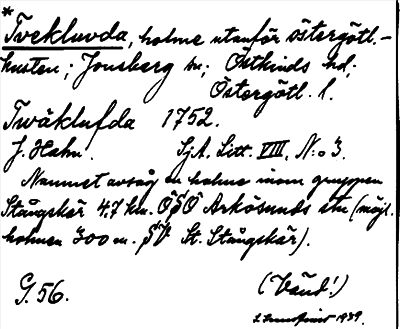 *
Tvekluvda, holme utanför östergötl.-
kusten; Jonsberg sn; Östkinds hd;
Östergötl. l.
Twäklufda 1752.
J. Hahn. SjA. Litt. VIII, N:o 3.
Namnet avsåg en holme inom gruppen
Stångskär 4,7 km. OSO Arkösunds stn (möjl.
holmen 300 m. SV St. Stångskär).
G. 56. (Vänd!)
1939.